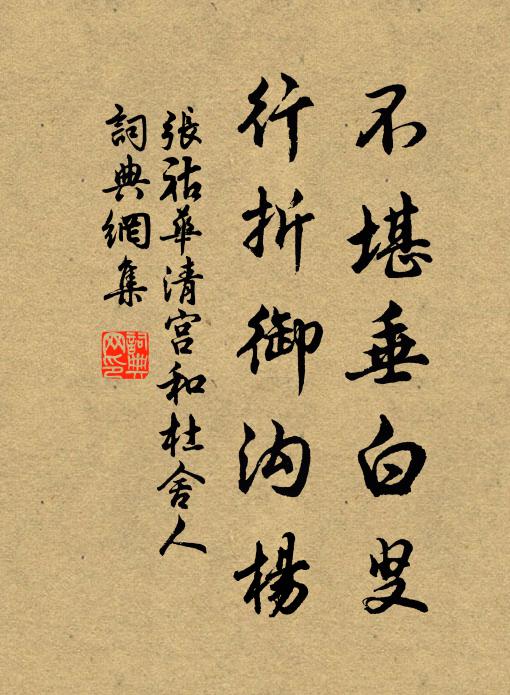 不堪垂白叟
行折御沟楊
張祜華清宫和杜舍人
詞典網集
詞典網印